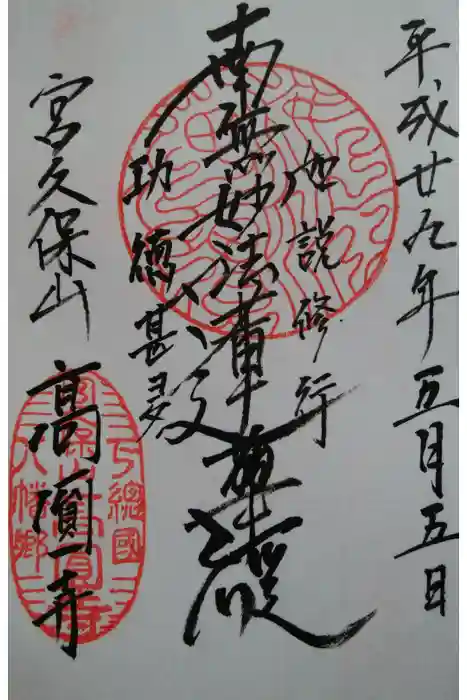 平成廿九年五月五日
如説修行
南無妙法蓮華経
功徳甚多
宮久保山 高圓寺
下總國
八幡郷